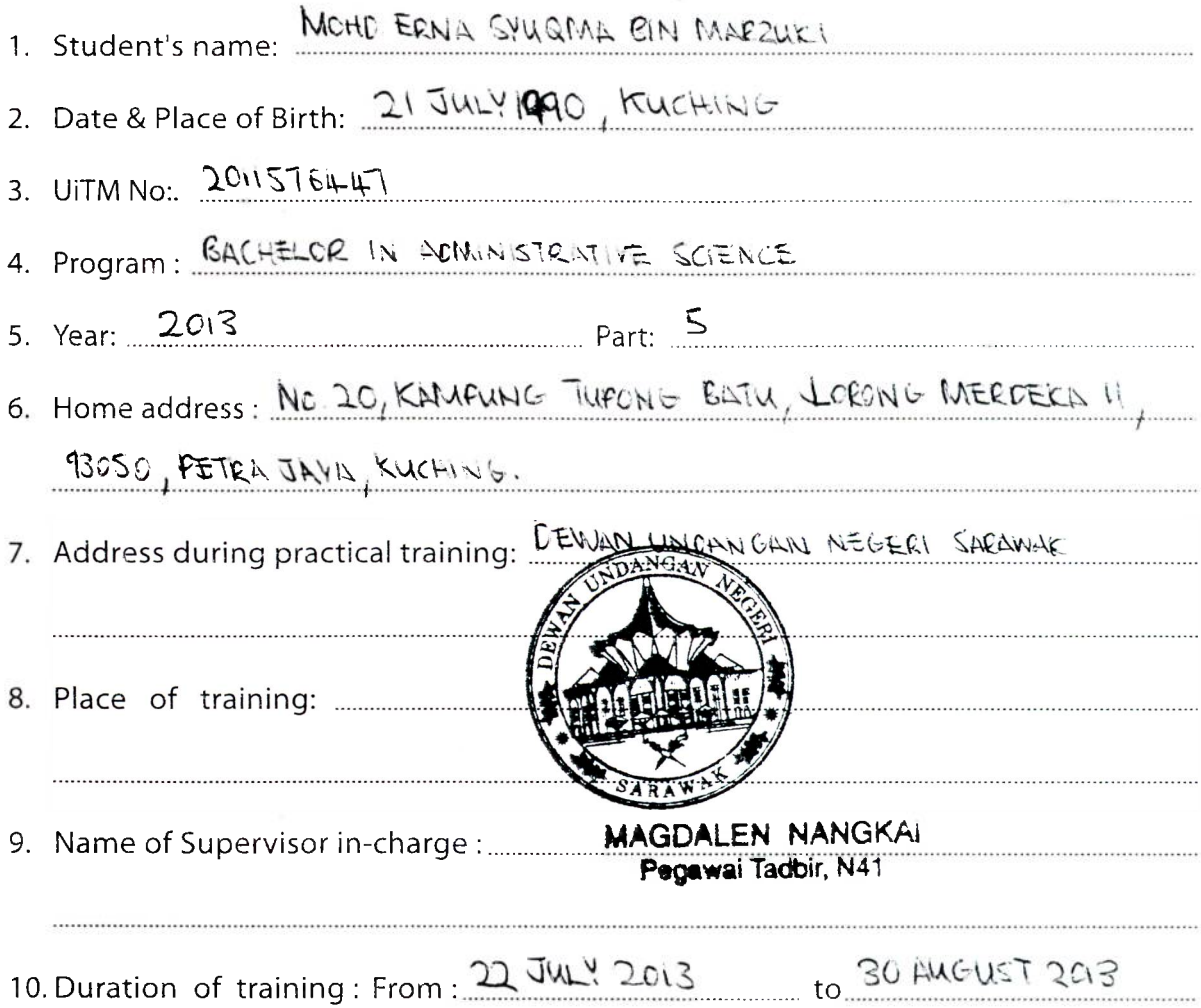 1. Student's name: MOHD ERNA SYUQMA BIN MARZUKI
2. Date & Place of Birth: 21 JULY 1990, KUCHING
3. UiTM No:. 2011576447
4. Program : BACHELOR IN ADMINISTRATIVE SCIENCE
5. Year: 2013 Part: 5
6. Home address : No. 20, KAMPUNG TUPONG BATU, LORONG MERDEKA 11,
93050, PETRA JAYA, KUCHING.
7. Address during practical training: DEWAN UNDANGAN NEGERI SARAWAK
DEWAN UNDANGAN NEGERI
8. Place of training:
SARAWAK
9. Name of Supervisor in-charge : MAGDALEN NANGKAI
Pegawai Tadbir, N41
10. Duration of training : From : 22 JULY 2013 to 30 AUGUST 2013